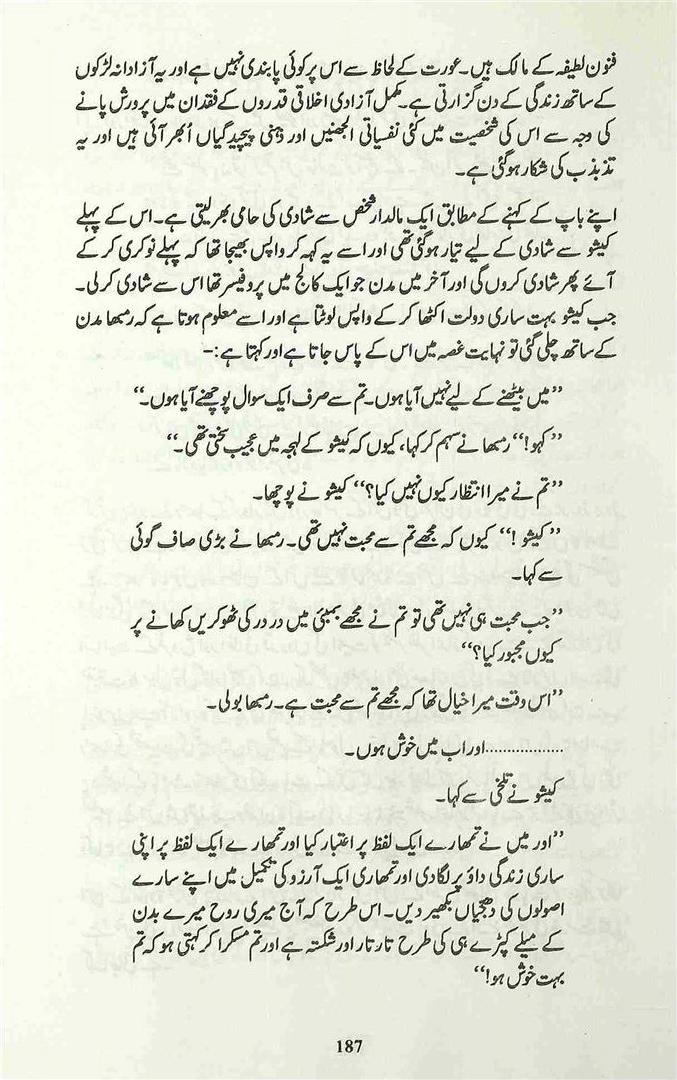 فنون لطیفہ کے مالک ہیں۔ عورت کے لحاظ سے اس پر کوئی پابندی نہیں ہے اور یہ آزادانہ لڑکوں
کے ساتھ زندگی کے دن گزارتی ہے۔ مکمل آزادی اخلاقی قدروں کے فقدان میں پرورش پانے
کی وجہ سے اس کی شخصیت میں کئی نفسیاتی الجھنیں اور ذہنی پیچیدگیاں اُبھر آئی ہیں اور یہ
تذبذب کی شکار ہو گئی ہے۔
اپنے باپ کے کہنے کے مطابق ایک مالدار شخص سے شادی کی حامی بھر لیتی ہے۔ اس کے پہلے
کیشو سے شادی کے لیے تیار ہو گئی تھی اور اسے یہ کہہ کر واپس بھیجا تھا کہ پہلے نوکری کر کے
آئے پھر شادی کروں گی اور آخر میں مدن جو ایک کالج میں پروفیسر تھا اس سے شادی کر لی۔
جب کیشو بہت ساری دولت اکٹھا کر کے واپس لوٹتا ہے اور اسے معلوم ہوتا ہے کہ رمبھا مدن
کے ساتھ چلی گئی تو نہایت غصہ میں اس کے پاس جاتا ہے اور کہتا ہے:-
’’میں بیٹھنے کے لیے نہیں آیا ہوں۔ تم سے صرف ایک سوال پوچھنے آیا ہوں۔‘‘
’’کہو!‘‘ رمبھا نے سہم کر کہا، کیوں کہ کیشو کے لہجہ میں عجیب سختی تھی۔‘‘
’’تم نے میرا انتظار کیوں نہیں کیا؟‘‘ کیشو نے پوچھا۔
’’کیشو!‘‘ کیوں کہ مجھے تم سے محبت نہیں تھی۔ رمبھا نے بڑی صاف گوئی
سے کہا۔
’’جب محبت ہی نہیں تھی تو تم نے مجھے بمبئی میں در در کی ٹھوکریں کھانے پر
کیوں مجبور کیا؟‘‘
’’اس وقت میرا خیال تھا کہ مجھے تم سے محبت ہے۔ رمبھا بولی۔
..................اور اب میں خوش ہوں۔
کیشو نے تلخی سے کہا۔
’’اور میں نے تمھارے ایک لفظ پر اعتبار کیا اور تمھارے ایک لفظ پر اپنی
ساری زندگی داؤ پر لگا دی اور تمھاری ایک آرزو کی تکمیل میں اپنے سارے
اصولوں کی دھجیاں بکھیر دیں۔ اس طرح کہ آج میری روح میرے بدن
کے میلے کپڑے ہی کی طرح تار تار اور شکستہ ہے اور تم مسکرا کر کہتی ہو کہ تم
بہت خوش ہو!‘‘
187